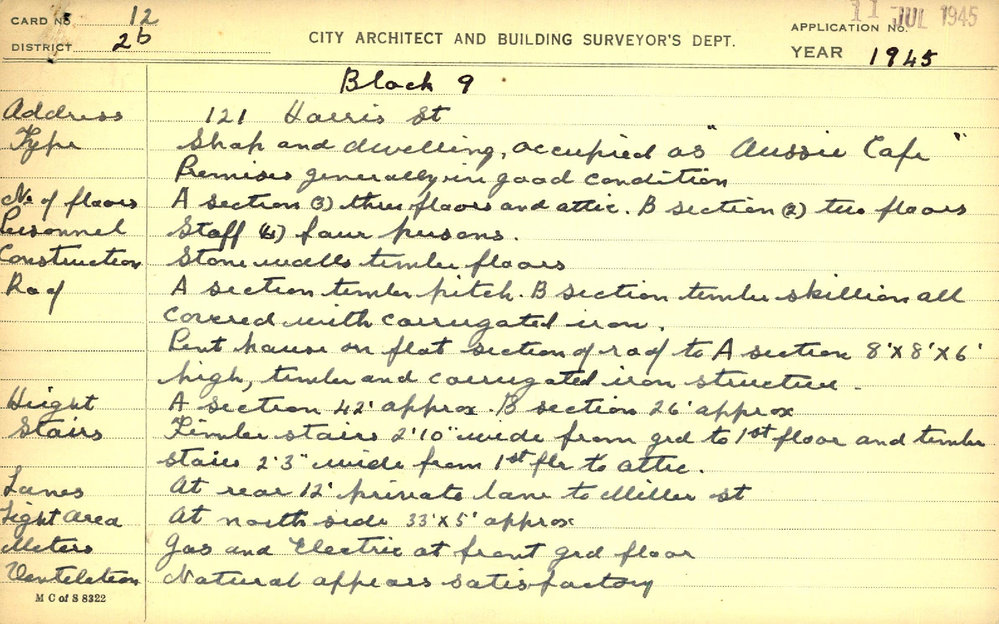 CARD No 12
11 JUL 1945
APPLICATION No.
DISTRICT 2b
CITY ARCHITECT AND BUILDING SURVEYOR'S DEPT.
YEAR 1945
Block 9
Address 121 Harris St
Type Shop and dwelling, occupied as "Aussie Cafe"
Premises generally in good condition
No of floors A section (3) three floors and attic. B section (2) two floors
Personnel Staff (4) four persons.
Construction Stone walls timber floors
Roof A section timber pitch. B section timber skillion all
covered with corrugated iron.
Pent house on flat section of roof to A section 8'X8'X6'
high, timber and corrugated iron structure.
Height A section 42' approx. B section 26' approx
Stairs Timber stairs 2'10" wide from grd to 1st floor and timber
stairs 2'3" wide from 1st flr to attic.
Lanes At rear 12' private lane to Miller st
Light Area At north side 33'X5' approx
Meters Gas and Electric at front grd floor
Ventilation Natural appears satisfactory
M C of S 8322